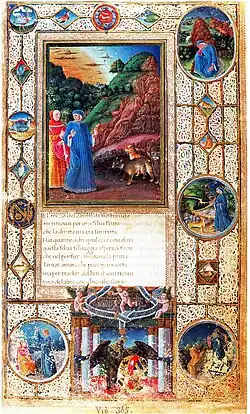 mezzo del camin di nostra vita
mi ritrovai per una selva scura
che la diritta via era smarrita
quanto a dir qual era e cosa dura
questa selva selvaggia et aspra et forte
che nel pensier rinova la paura
Tanto amara che poco e piu morte
ma per trattar del ben
diro del altre cose
365